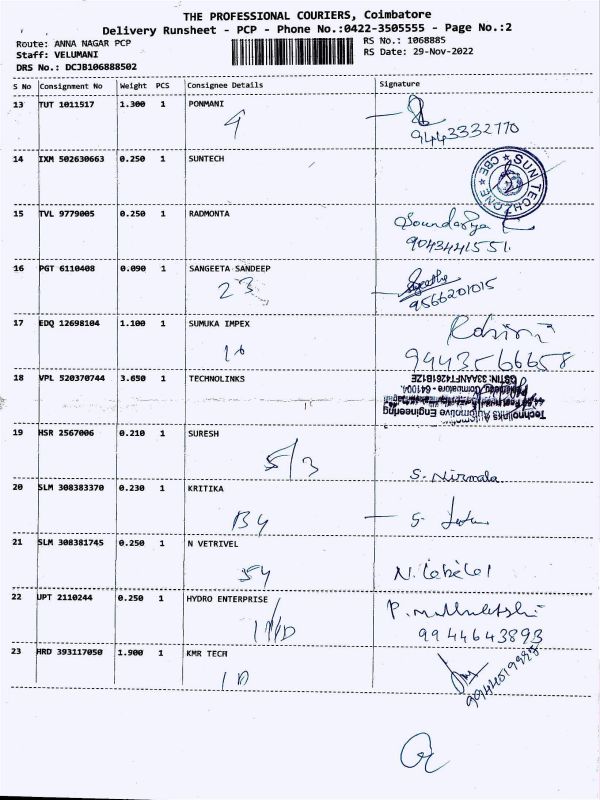 THE PROFESSIONAL COURIERS, Coimbatore
Delivery Runsheet - PCP - Phone No.:0422-3505555 - Page No.:2
Route: ANNA NAGAR PCP
Staff: VELUMANI
DRS No.: DCJB106888502
RS No.: 1068885
RS Date: 29-Nov-2022
S No Consignment No Weight PCS Consignee Details Signature
13 TUT 1011517 1.300 1 PONMANI
9443332770
14 IXM 502630663 0.250 1 SUNTECH
SUN TECH ZONE CBE
15 TVL 9779005 0.250 1 RADMONTA
Soundarya K
9043441551.
16 PGT 6110408 0.090 1 SANGEETA SANDEEP
23
9566201015
17 EDQ 12698104 1.100 1 SUMUKA IMPEX
9443566658
18 VPL 520370744 3.650 1 TECHNOLINKS
Technolinks Automotive Engineering
Coimbatore - 641004.
GSTIN: 33AANFT4261B1ZE
19 HSR 2567006 0.210 1 SURESH
5/3
S. Nirmala
20 SLM 308383370 0.230 1 KRITIKA
B4
21 SLM 308381745 0.250 1 N VETRIVEL
54
22 UPT 2110244 0.250 1 HYDRO ENTERPRISE
9944643893
23 HRD 393117050 1.900 1 KMR TECH
1D